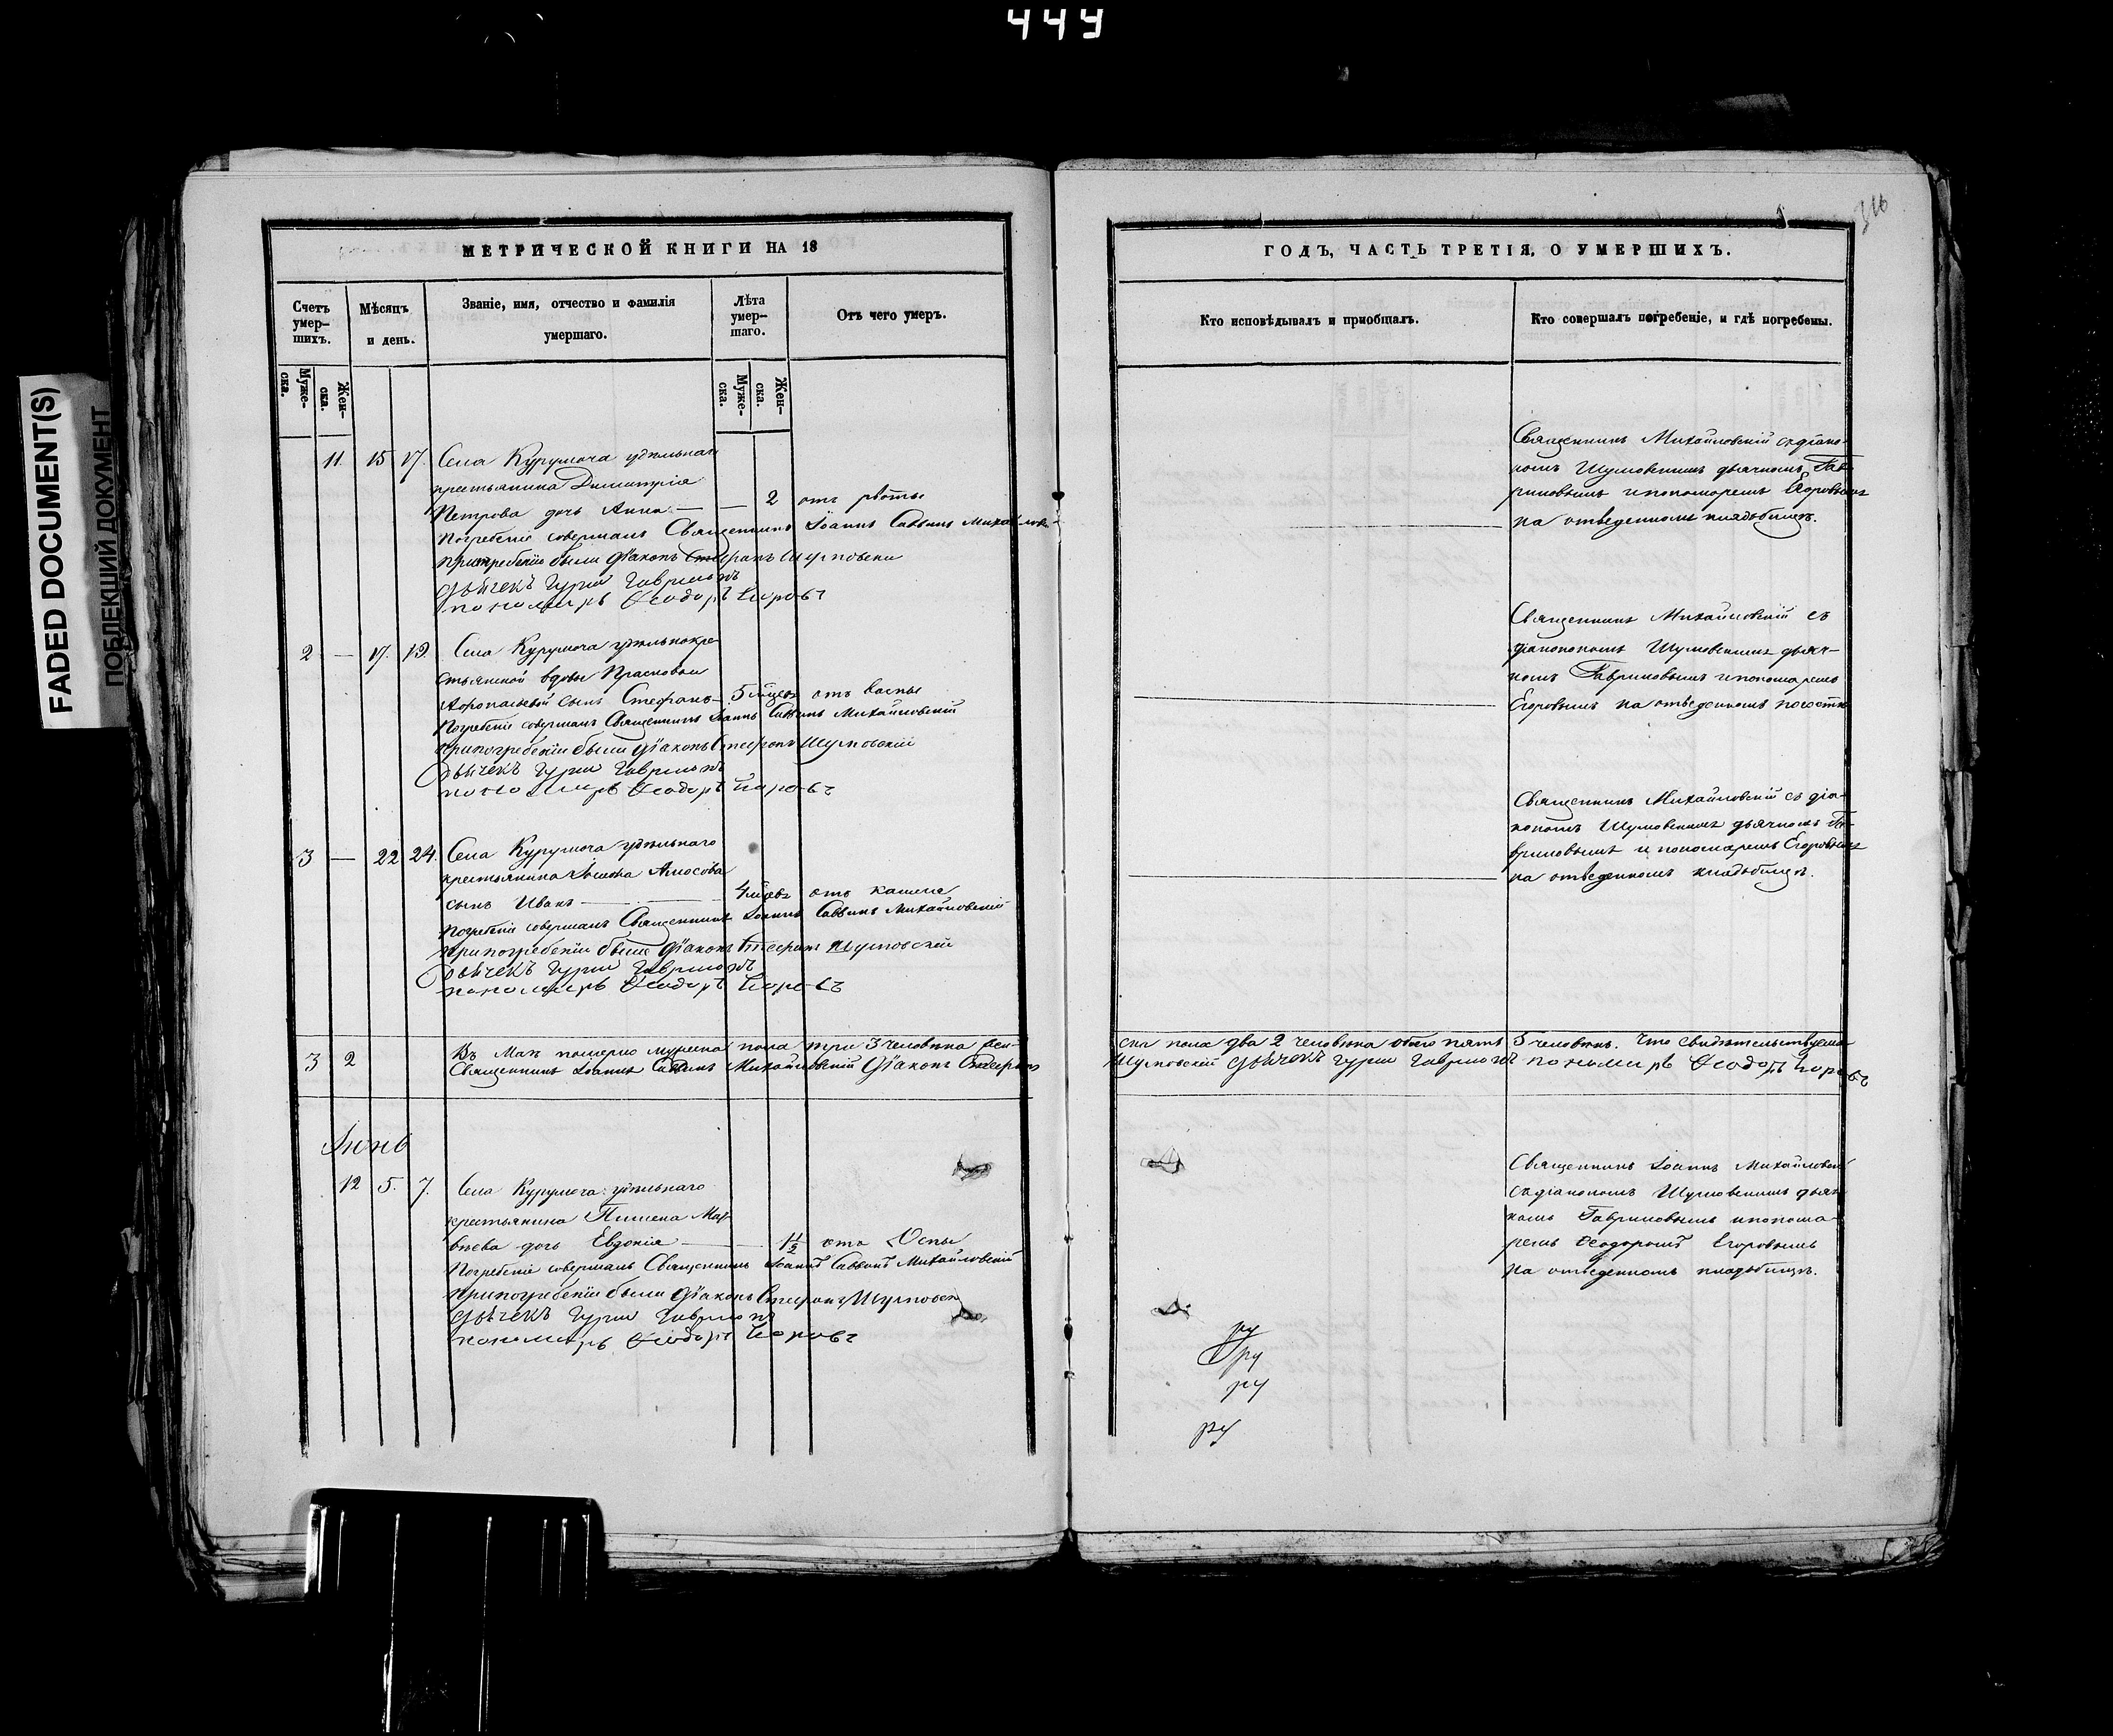 444
FADED DOCUMENT(S)
ПОБЛЕКШИЙ ДОКУМЕНТ
МЕТРИЧЕСКОЙ КНИГИ НА 18
Счетъ умер-шихъ.
Муже-ска.
Жен-ска.
Мѣсяцъ и день.
Званіе, имя, отчество и фамилія
умершаго.
Лѣта умер-шаго.
Муже-ска.
Жен-ска.
Отъ чего умеръ.
11. 15 17. Села Курумоча удѣльнаго
крестьянина Димитрія
Петрова дочь Анна — — 2 отъ рвоты
Погребеніе совершалъ Священникъ Іоаннъ Саввинъ Михайлов-
при погребеніи были Діаконъ Стефанъ Шумовски
дьячекъ Гурій Гавриловъ
пономарь Ѳеодоръ Егоровъ
2 — 17. 19. Села Курумоча удѣльнокре-
стьянской вдовы Прасковьи
сынъ Стефанъ — 5 мѣцевъ отъ воспы
Погребеніе совершалъ Священникъ Іоаннъ Саввинъ Михайловскій
при погребеніи были Діаконъ Стефанъ Шумовскій
дьячекъ Гурій Гавриловъ
пономарь Ѳеодоръ Егоровъ
3 — 22 24. Села Курумоча удѣльнаго
крестьянина Амосова
сынъ Иванъ — 4 мѣцевъ отъ кашля
Погребеніе совершалъ Священникъ Іоаннъ Саввинъ Михайловскій
при погребеніи были Діаконъ Стефанъ Шумовскій
дьячекъ Гурій Гавриловъ
пономарь Ѳеодоръ Егоровъ
3 2 Въ Маѣ померло мужеска пола три 3 человѣка жен-
Священникъ Іоаннъ Саввинъ Михайловскій Діаконъ Стефанъ
Іюнь
12 5. 7. Села Курумоча удѣльнаго
крестьянина Пимена Мат-
вѣева дочь Евдокія — 1 1/2 отъ Оспы
Погребеніе совершалъ Священникъ Іоаннъ Саввинъ Михайловскій
при погребеніи были Діаконъ Стефанъ Шумовск
дьячекъ Гурій Гавриловъ
пономарь Ѳеодоръ Егоровъ
316
ГОДЪ, ЧАСТЬ ТРЕТІЯ, О УМЕРШИХЪ.
Кто исповѣдывалъ и пріобщалъ.
Кто совершалъ погребеніе, и гдѣ погребены.
Священникъ Михайловскій съ діако-
номъ Шумовскимъ дьячкомъ Гав-
риловымъ и пономаремъ Егоровымъ
на отведенномъ кладбищѣ.
Священникъ Михайловскій съ
діакономъ Шумовскимъ дьяч-
комъ Гавриловымъ и пономаремъ
Егоровымъ на отведенномъ погостѣ
Священникъ Михайловскій съ діа-
кономъ Шумовскимъ дьячкомъ Га-
вриловымъ и пономаремъ Егоровымъ
на отведенномъ кладбищѣ.
ска пола два 2 человѣка обоего пять 5 человѣкъ. Что свидѣтельствуемъ
Шумовскій дьячекъ Гурій Гавриловъ пономарь Ѳеодоръ Егоровъ
Священникъ Іоаннъ Михайловскій
съ діакономъ Шумовскимъ дьяч-
комъ Гавриловымъ и понома-
ремъ Ѳеодоромъ Егоровымъ
на отведенномъ кладбищѣ.
ру
Гру
ру
ру